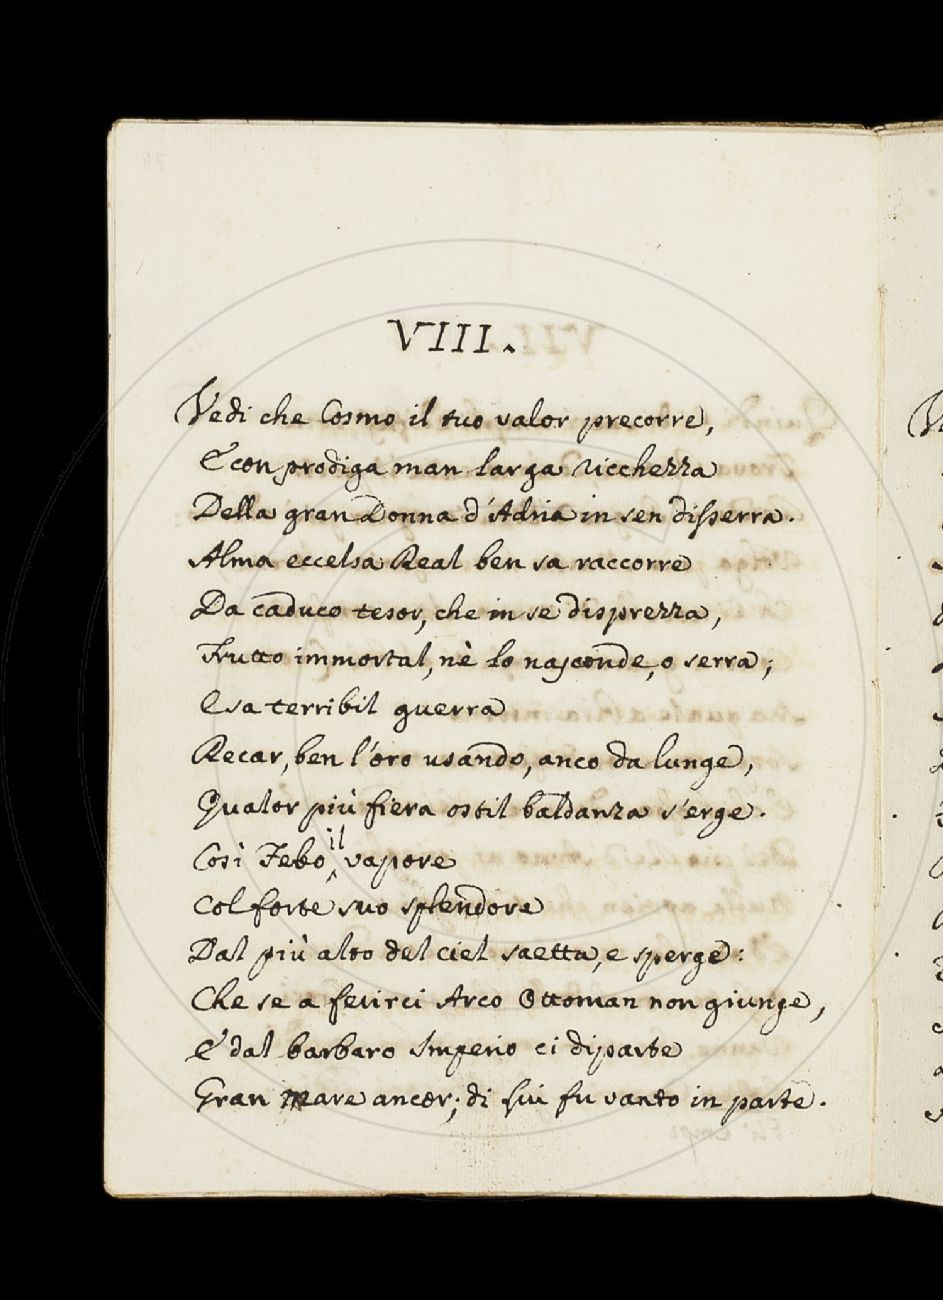 VIII.
Vedi che Cosmo il tuo valor precorre,
E con prodiga man larga ricchezza
Della gran Donna d'Adria in sen disserra.
Alma eccelsa Real ben sa raccorre
Da caduco tesor, che in se disprezza,
Frutto immortal, nè lo nasconde, o serra;
E sa terribil guerra
Recar, ben l'oro usando, anco da lunge,
Qualor più fiera ostil baldanza s'erge.
Così Febo il vapore
Col forte suo splendore
Dal più alto del ciel saetta, e sperge:
Che se a ferirci Arco Ottoman non giunge,
E' dal barbaro Imperio ci diparte
Gran Mare ancor; di lui fu vanto in parte.